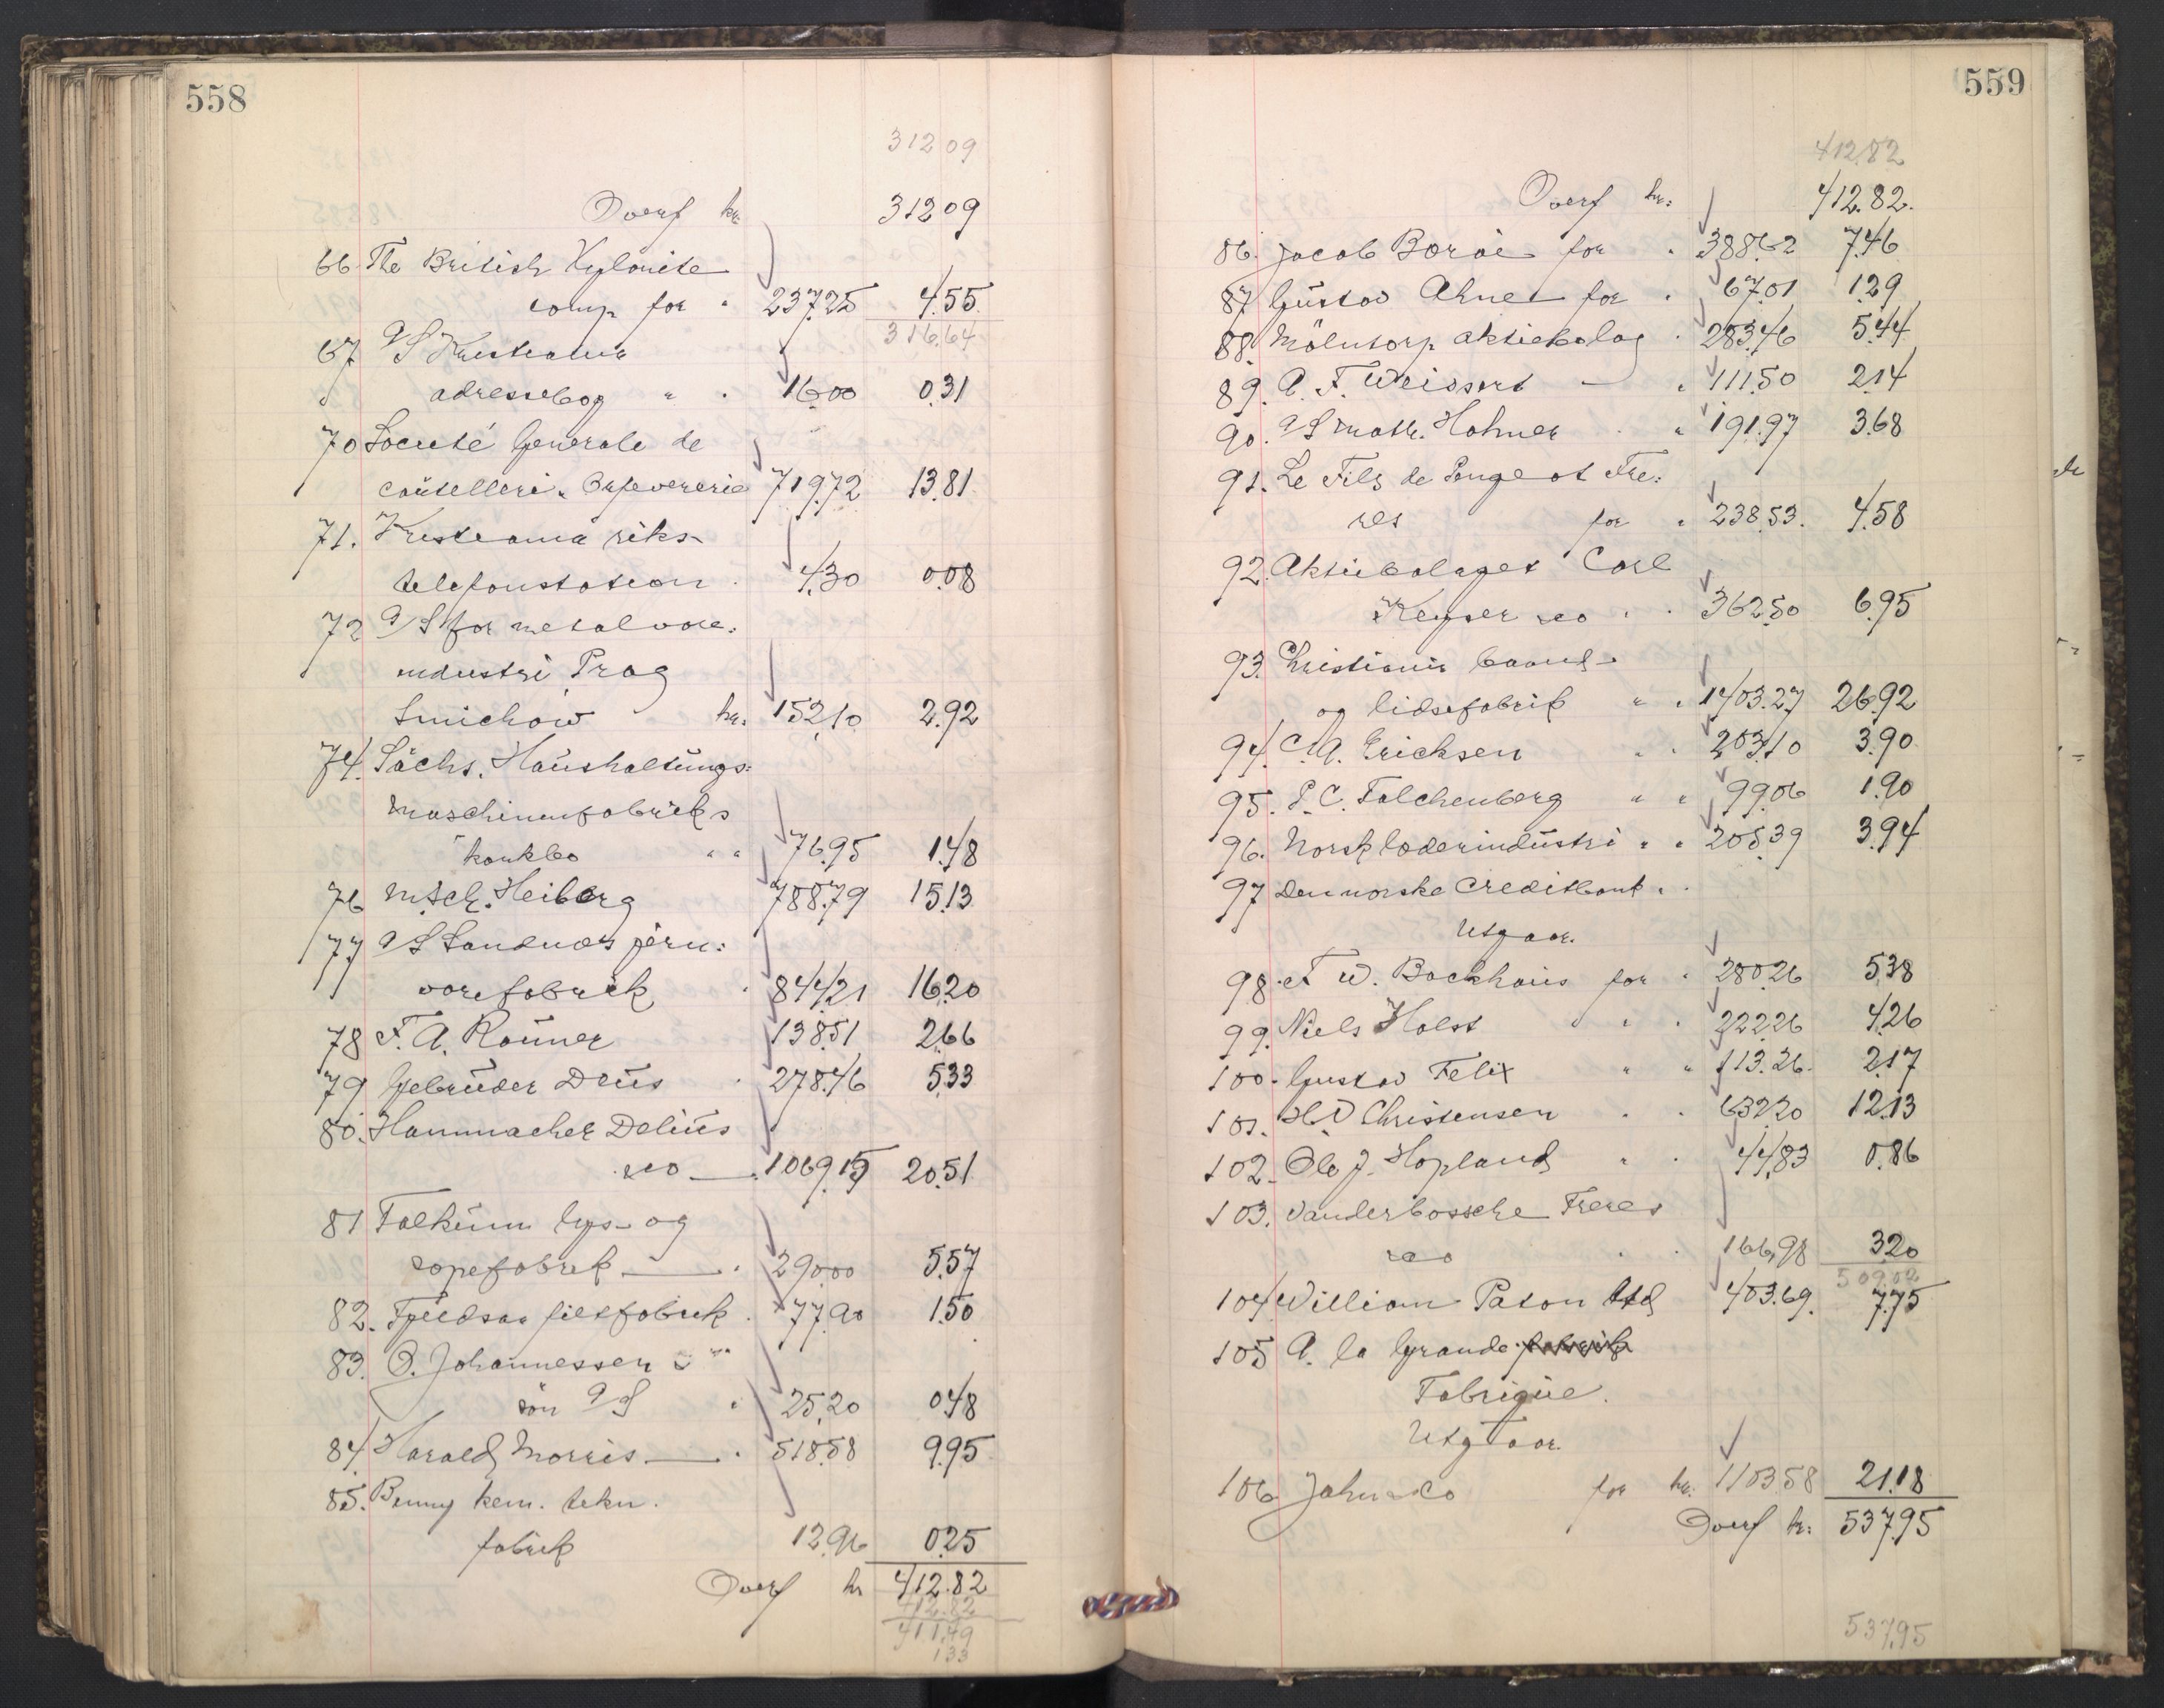 558
312 09
Overf kr. 312 09
66 The British Xylonite
comp for " 237.25 4.55
316.64
67 A/S Kristiania
adressebog " . 16.00 0.31
70 Societé Generale de
coutelleri & Orfevererie 719.72 13.81
71. Kristiania riks-
telefonstation . 4.30 0.08
72 A/S for metalvare:
industri Prag
Smichow kr. 152.10 2.92
74. Sächs. Haushaltungs-
maschinenfabriks
konkbo " " 76.95 1.48
76 M. Sch. Heiberg 788.79 15.13
77 A/S Sandnæs jern:
varefabrik . 844.21 16.20
78 F. A. Rauner 138.51 2.66
79 Gebrüder Deus . 278.46 5.33
80. Hammacher Delius
&co — . 1069.15 20.51
81 Falkum lys- og
sæpefabrik — . 290.00 5.57
82. Fjeldsøe filtfabrik . 77.90 1.50
83. O. Johannessen &
sön A/S " 25.20 0.48
84. Harald Morris — . 518.58 9.95
85. Benny kem. tekn.
fabrik 12.96 0.25
Overf kr 412.82
412.82
411.49
133
559
412.82
Overf kr: 412.82.
86. Jacob Boröe for " 388.62 7.46
87 Gustav Ahne for " 67.01 1.29
88. Mölntorp aktiebolag . 283.46 5.44
89. A. F. Weissert — " 111.50 2.14
90. A/S Math. Hohner . " 191.97 3.68
91. Le Fils de Peugeot Fre:
res for " 238.53. 4.58
92. Aktiebolaget Carl
Keyser &co . . 362.50 6.95
93. Christiania baand-
og lidsefabrik " . 1403.27 26.92
94. C. A. Ericksen " . 203.10 3.90
95. P. C. Falchenberg " " 99.06 1.90
96. Norsk læderindustri " " 205.39 3.94
97 Den norske Creditbank. .
Utgaar.
98. F W. Backhaus for " 280.26 5.38
99. Niels Holst " . 222.26 4.26
100. Gustav Felix " " 113.26. 2.17
101. H.D Christensen . . 632.20 12.13
102. Ole J. Hopland " . 44.83 0.86
103. Vanderbossche Freres
&co . . 166.98 3.20
509.02
104. William Paton Ltd 403.69. 7.75
105 A. la Grande fabrik
Fabrique.
Utgaar
106 Jahn & Co for kr. 1103.58 21.18
Overf kr: 537.95
537.95